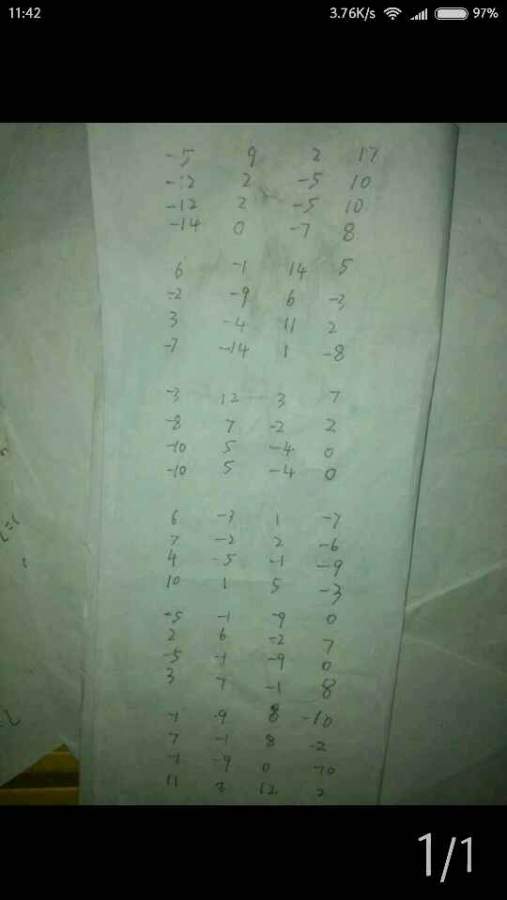 11:42 3.76K/s 97%
-5 9 2 17
-12 2 -5 10
-12 2 -5 10
-14 0 -7 8
6 -1 14 5
-2 -9 6 -3
3 -4 11 2
-7 -14 1 -8
-3 12 3 7
-8 7 -2 2
-10 5 -4 0
-10 5 -4 0
6 -3 1 -7
7 -2 2 -6
4 -5 -1 -9
10 1 5 -3
-5 -1 -9 0
2 6 -2 7
-5 -1 -9 0
3 7 -1 8
-1 -9 8 -10
7 -1 8 -2
-1 -9 0 -10
11 12 2
1/1